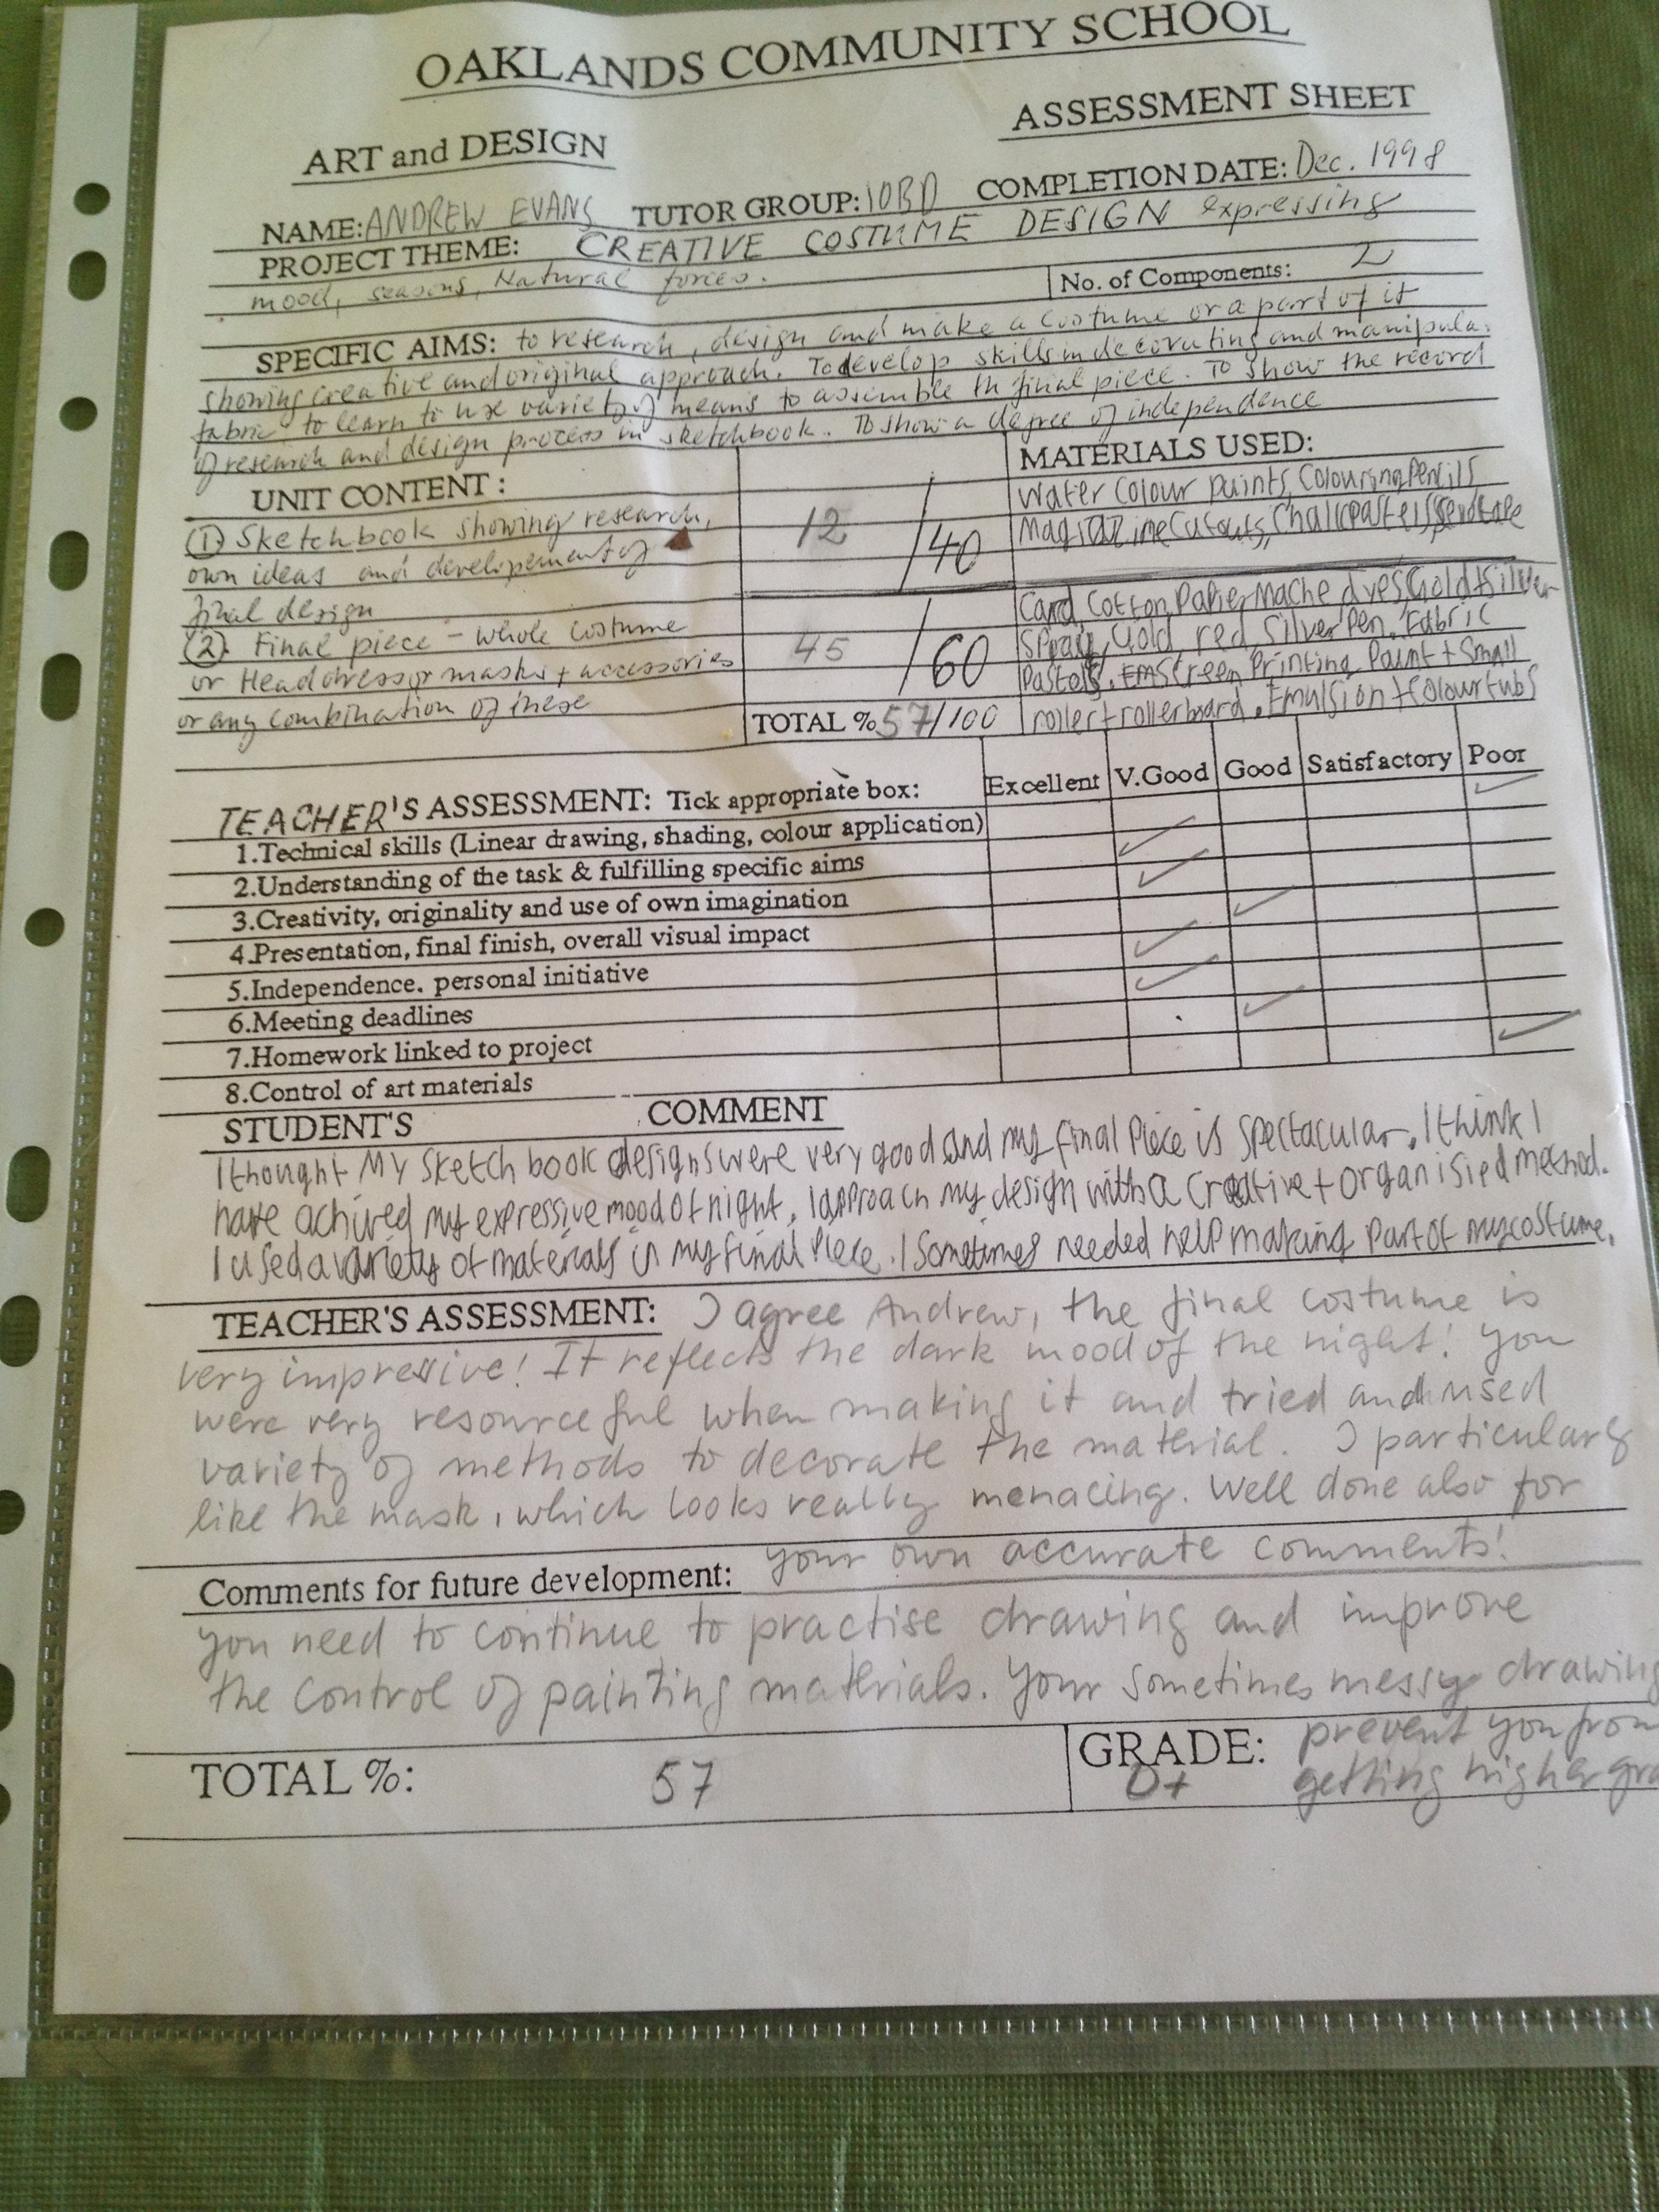 OAKLANDS COMMUNITY SCHOOL
ART and DESIGN
ASSESSMENT SHEET
NAME: ANDREW EVANS TUTOR GROUP: 10BD COMPLETION DATE: Dec. 1998
PROJECT THEME: CREATIVE COSTUME DESIGN expressing
mood, seasons, Natural forces.
No. of Components: 2
SPECIFIC AIMS: to research, design and make a costume or a part of it
showing creative and original approach. To develop skills in decorating and manipula.
fabric to learn to use variety of means to assemble th final piece. To show the record
of research and design process in sketchbook. To show a degree of independence
UNIT CONTENT:
(1) Sketchbook showing research,
own ideas and developement of
final design
12/40
(2). Final piece - whole costume
or Headdress or masks + accessories
or any combination of these
45/60
TOTAL % 57/100
MATERIALS USED:
Water colour paints, Colouring Pencils
Magazine Cutouts, Chalk pastels,
Card, Cotton, Papier Mache dyes, Gold + Silver
Spray, Gold, red, Silver Pen. Fabric
Pastels. Screen Printing Paint + Small
roller + rollerboard. Emulsion + Colour tubs
TEACHER'S ASSESSMENT: Tick appropriate box: Excellent V.Good Good Satisfactory Poor
1.Technical skills (Linear drawing, shading, colour application)
2.Understanding of the task & fulfilling specific aims
3.Creativity, originality and use of own imagination
4.Presentation, final finish, overall visual impact
5.Independence. personal initiative
6.Meeting deadlines
7.Homework linked to project
8.Control of art materials
STUDENT'S COMMENT
I thought My sketch book designs were very good and my final Piece is spectacular. I think I
have achived my expressive mood of night. I approach my design with a Creative + organisied method.
I used a variety of materials in my final Piece. I Sometimes needed help making part of my costume.
TEACHER'S ASSESSMENT: I agree Andrew, the final costume is
very impressive! It reflects the dark mood of the night! You
were very resourceful when making it and tried and used
variety of methods to decorate the material. I particularly
like the mask, which looks really menacing. Well done also for
your own accurate comments!
Comments for future development:
you need to continue to practise drawing and improve
the control of painting materials. Your sometimes messy drawing
prevent you from
getting higher gra
TOTAL %: 57
GRADE: D+